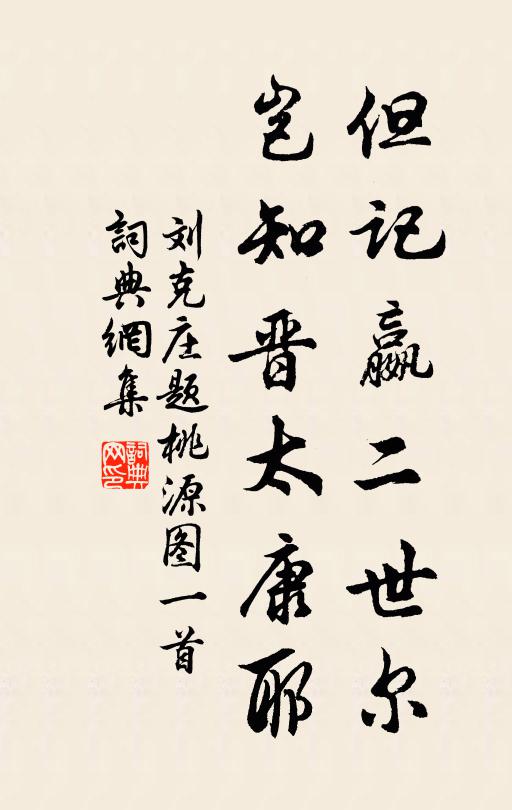 但记嬴二世尔
岂知晋太康耶
刘克庄题桃源图一首
詞典網集
詞典
网印